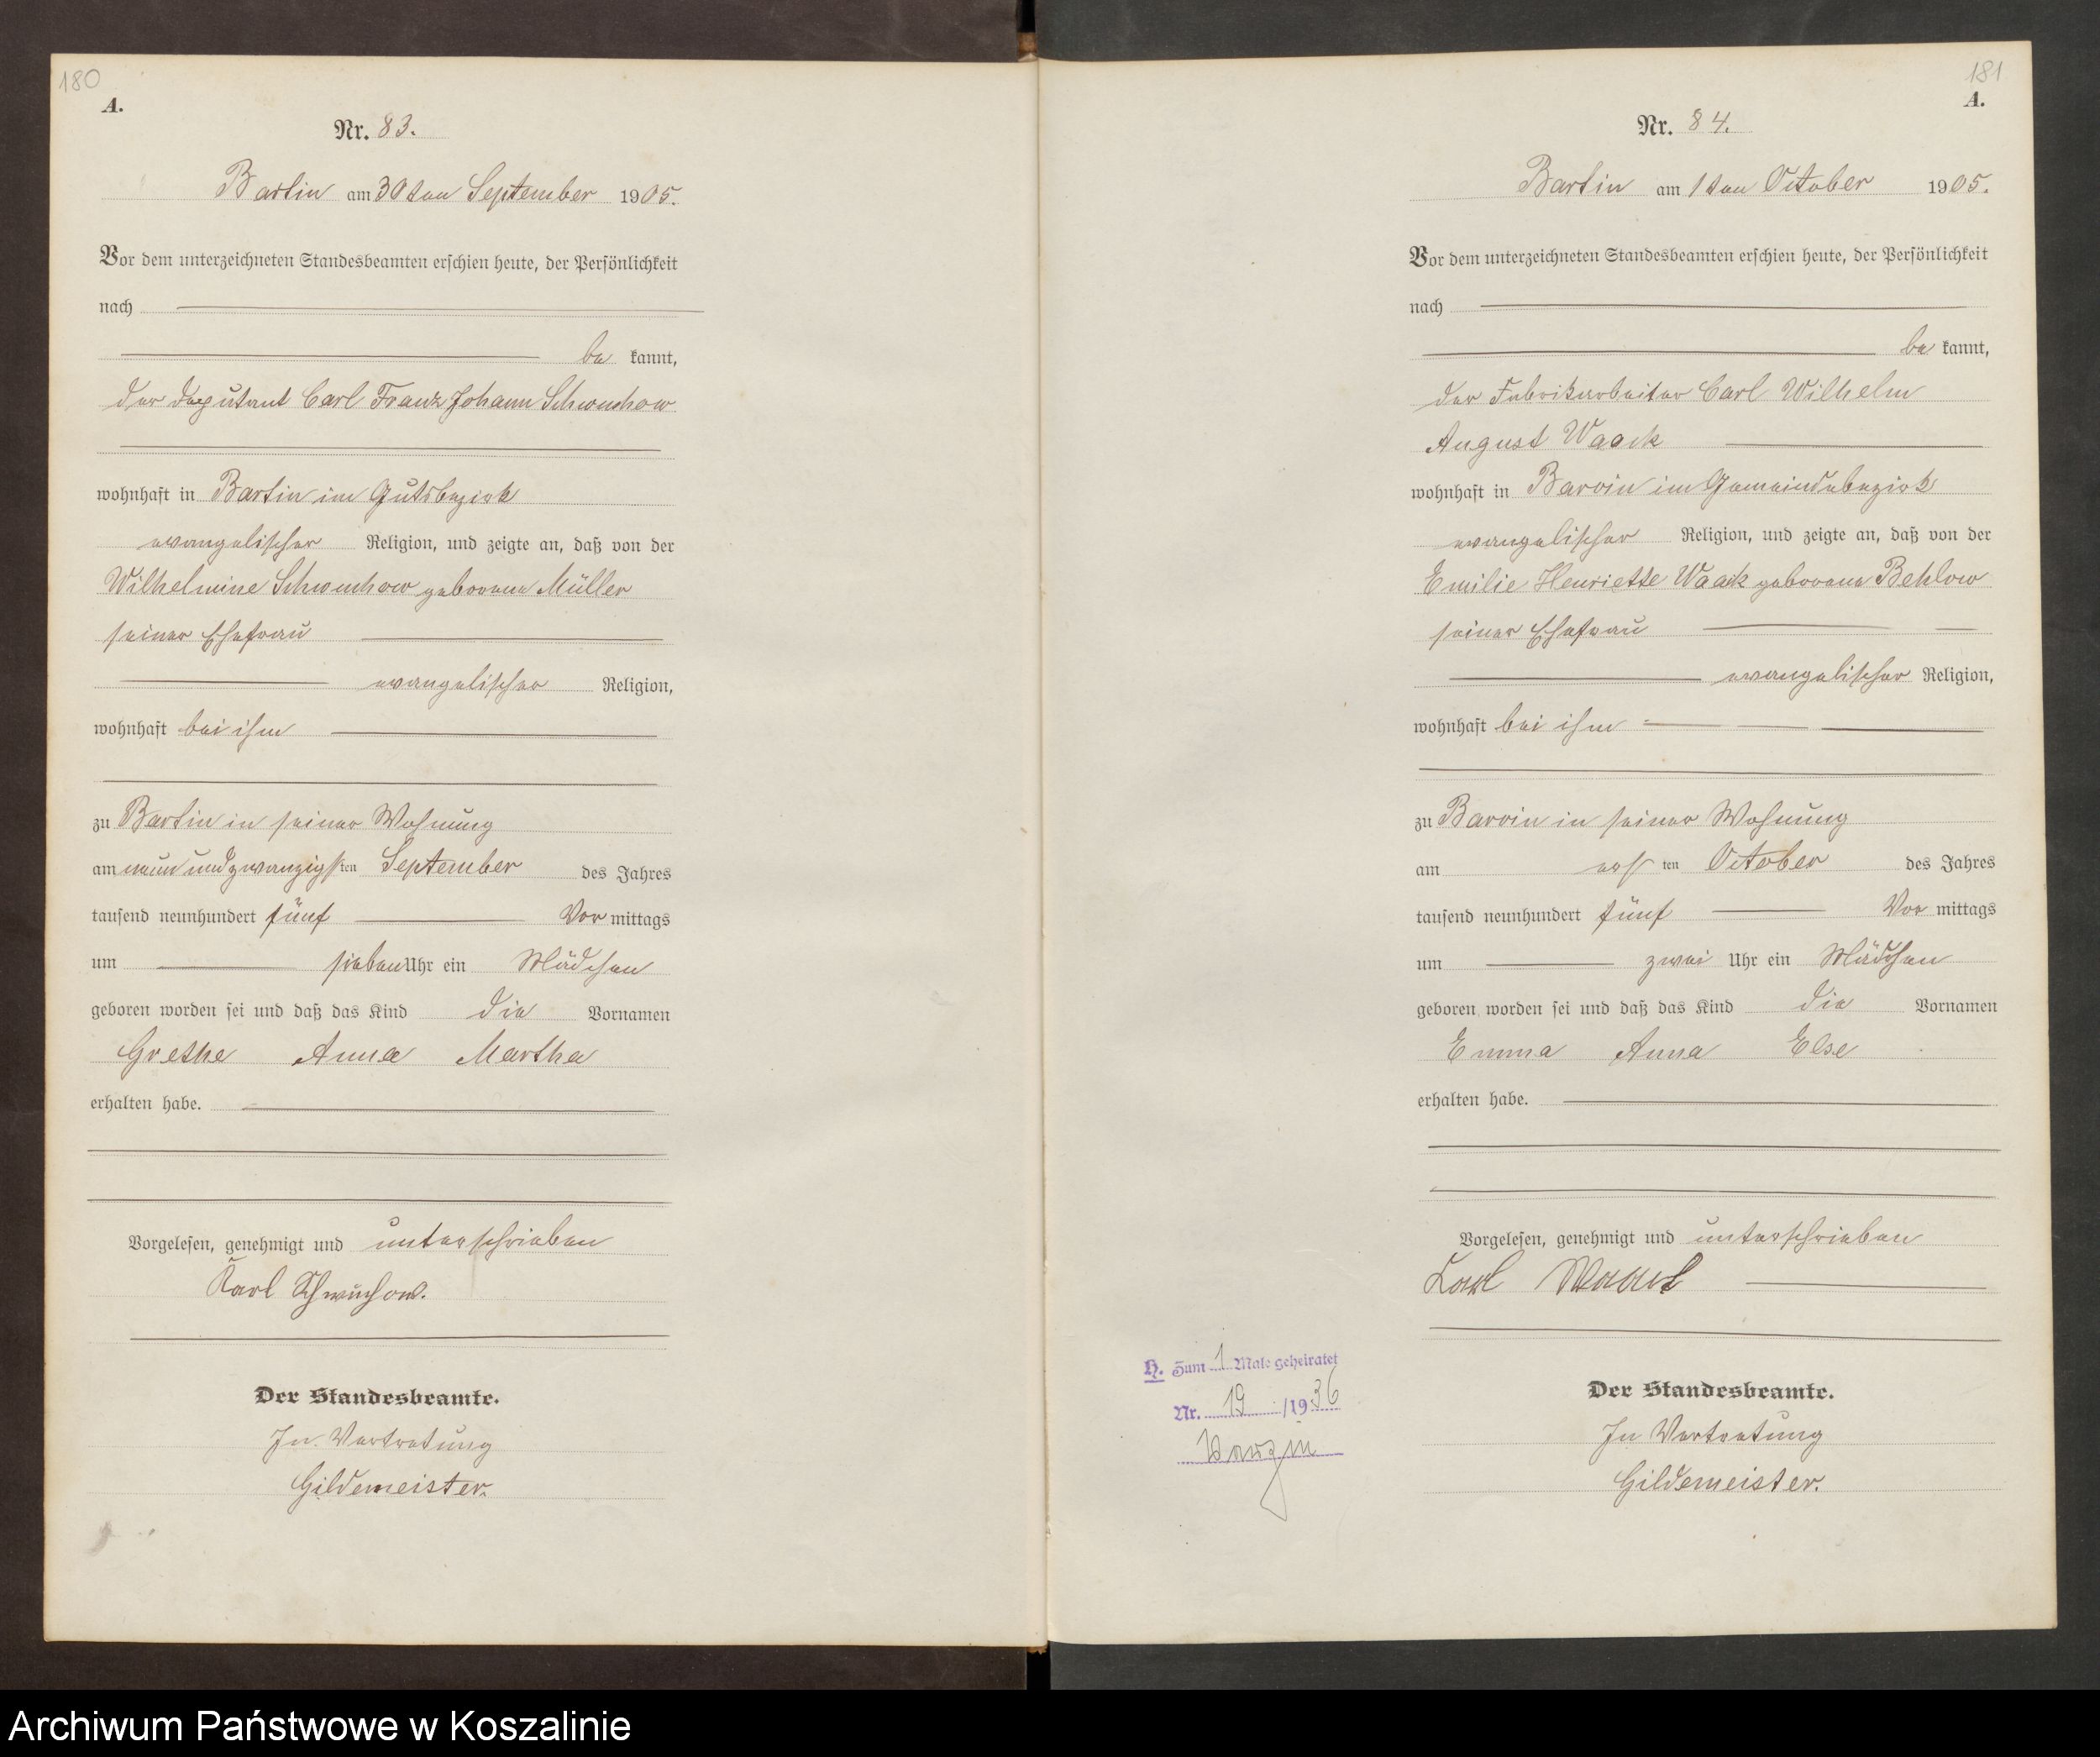 180
A.
Nr. 83.
Bartin am 30ten September 1905.
Vor dem unterzeichneten Standesbeamten erschien heute, der Persönlichkeit
nach
be kannt,
der Deputant Carl Franz Johann Schwuchow
wohnhaft in Bartin im Gutsbezirk
evangelischer Religion, und zeigte an, daß von der
Wilhelmine Schwuchow geborene Müller
seiner Ehefrau
evangelischer Religion,
wohnhaft bei ihm
zu Bartin in seiner Wohnung
am neunundzwanzigsten September des Jahres
tausend neunhundert fünf Vor mittags
um sieben Uhr ein Mädchen
geboren worden sei und daß das Kind die Vornamen
Grethe Anna Martha
erhalten habe.
Vorgelesen, genehmigt und unterschrieben
Karl Schwuchow.
Der Standesbeamte.
In Vertretung
Gildemeister.
181
A.
Nr. 84.
Bartin am 1ten October 1905.
Vor dem unterzeichneten Standesbeamten erschien heute, der Persönlichkeit
nach
be kannt,
der Fabrikarbeiter Carl Wilhelm
August Waack
wohnhaft in Barvin im Gemeindebezirk
evangelischer Religion, und zeigte an, daß von der
Emilie Henriette Waack geborene Behlow
seiner Ehefrau
evangelischer Religion,
wohnhaft bei ihm
zu Barvin in seiner Wohnung
am ersten October des Jahres
tausend neunhundert fünf Vor mittags
um zwei Uhr ein Mädchen
geboren worden sei und daß das Kind die Vornamen
Emma Anna Else
erhalten habe.
Vorgelesen, genehmigt und unterschrieben
Karl Waack
H. Zum 1 Male geheiratet
Nr. 19 /1936
Varzin
Der Standesbeamte.
In Vertretung
Gildemeister.
Archiwum Państwowe w Koszalinie